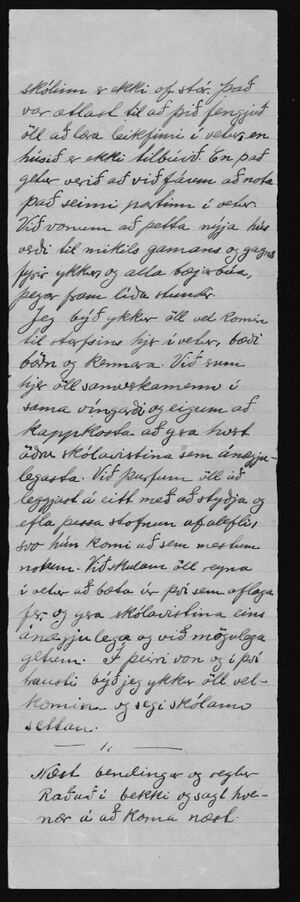 skólinn er ekki of stór. Það
var ætlast til að þið fengjuð
öll að læra leikfimi í vetur, en
húsið er ekki tilbúið. En það
getur verið að við förum að nota
það seinni partinn í vetur.
Við vonum að þetta nýja hús
verði til mikils gamans og gagns
fyrir ykkur, og alla bæjarbúa,
þegar fram líða stundir.
Jeg býð ykkur öll vel komin
til starfsins hjer í vetur, bæði
börn og kennara. Við erum
hjer öll samverkamenn í
sama víngarði og eigum að
kappkosta að gera hvert
öðru skólavistina sem ánægju-
legasta. Við þurfum öll að
leggjast á eitt með að styðja og
efla þessa stofnun af alefli,
svo hún komi að sem mestum
notum. Við skulum öll reyna
í vetur að bæta úr því sem aflaga
fer, og gera skólavistina eins
ánægjulega og við mögulega
getum. Í þeirri von og í því
trausti býð jeg ykkur öll vel-
komin og segi skólann
settan.
— " —
Næst bendingar og reglur
Raðað í bekki og sagt hve-
nær á að koma næst.